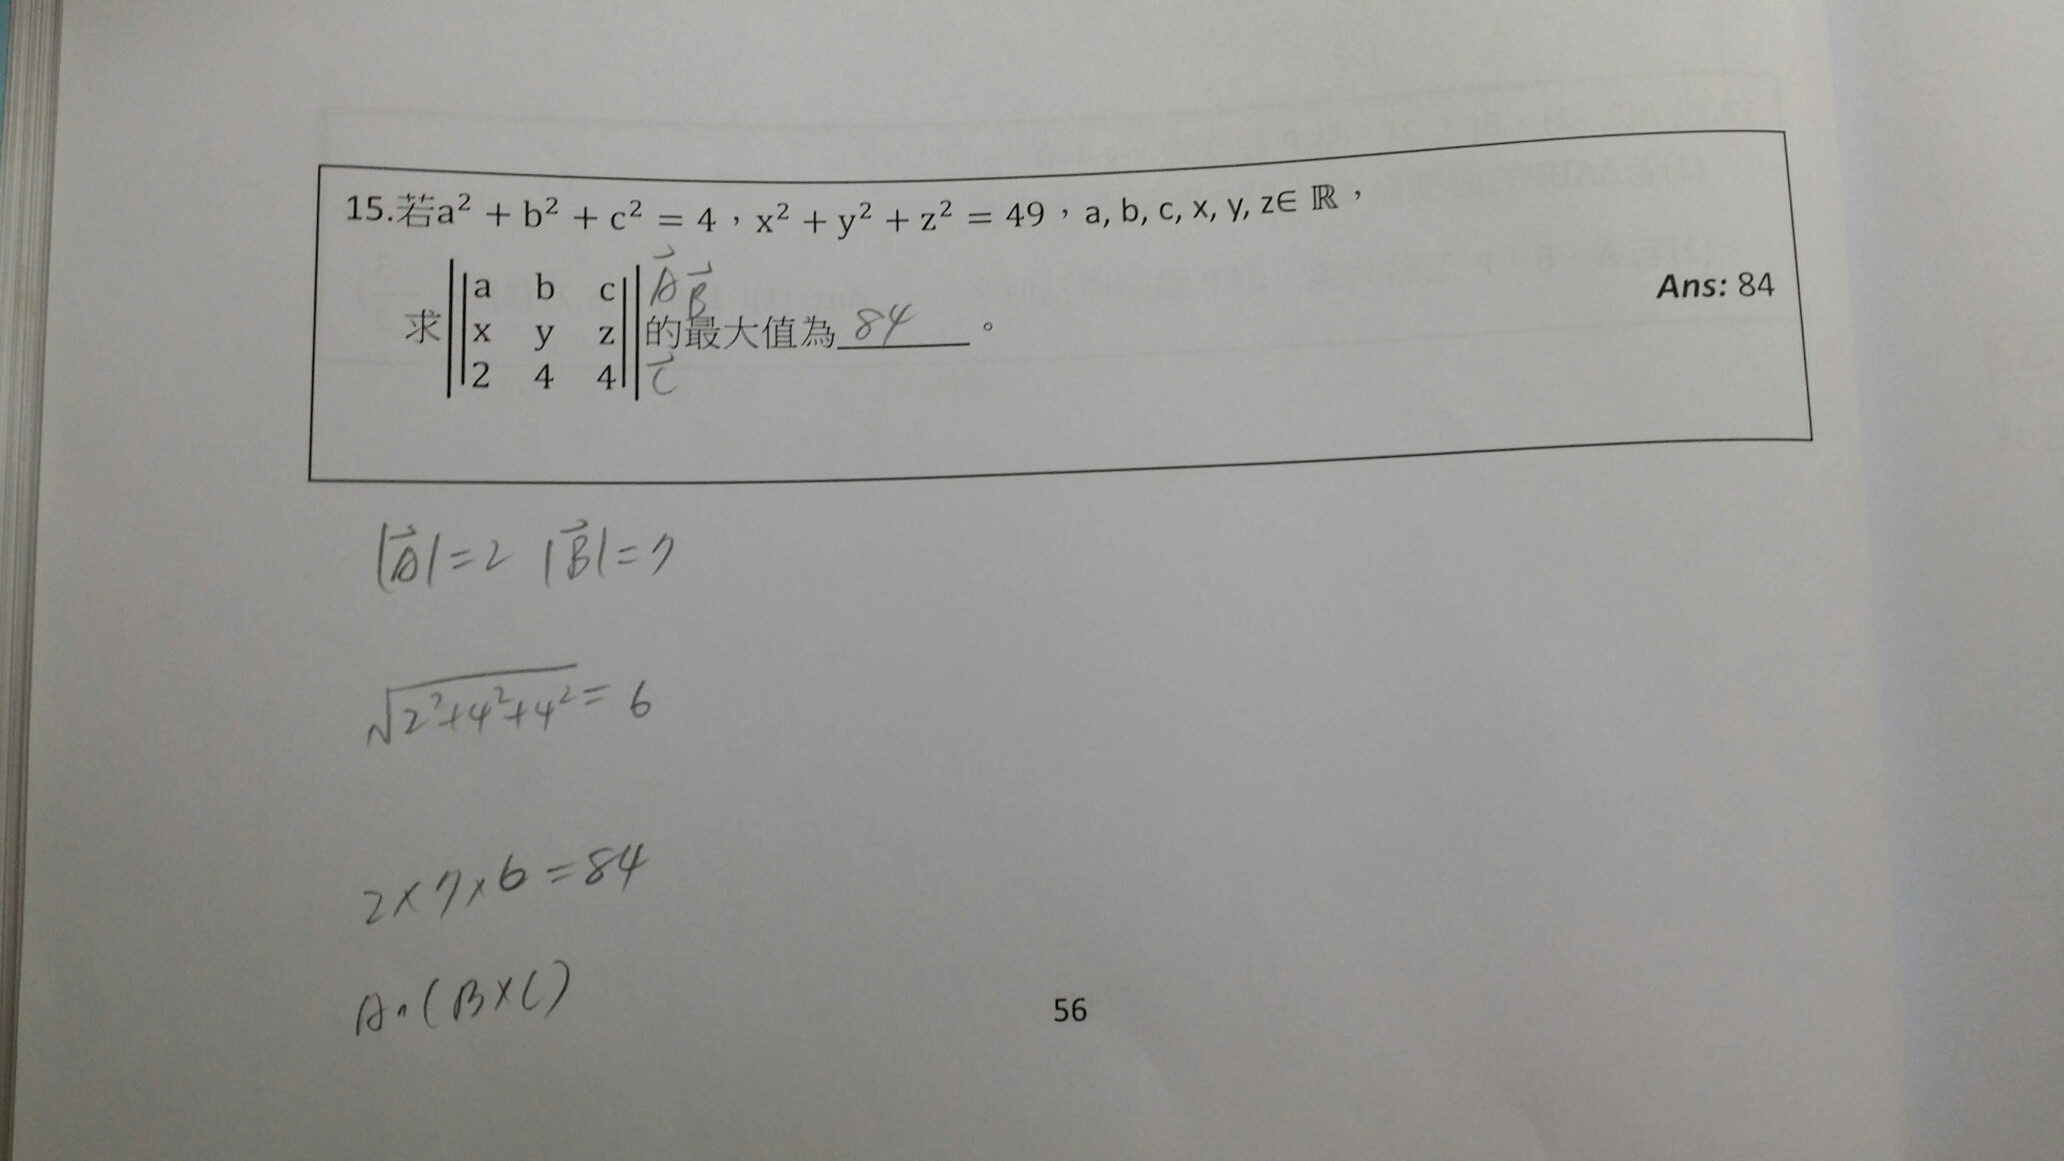 15.若a² + b² + c² = 4，x² + y² + z² = 49，a, b, c, x, y, z∈ ℝ，
a b c A⃗
x y z B⃗
2 4 4 C⃗
求 的最大值為 84 。
Ans: 84
|A⃗|=2 |B⃗|=7
√2²+4²+4² = 6
2×7×6=84
A·(B×C)
56